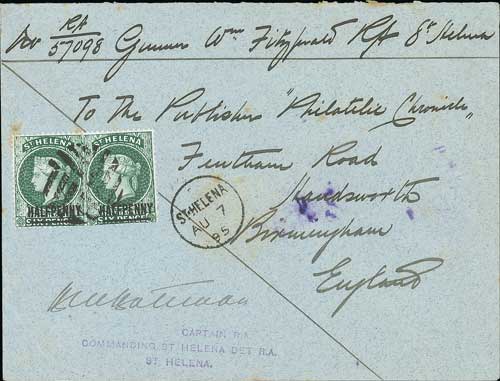 RA
No 57098 Gunner Wm Fitzgerald RA St Helena
To The Publishers "Philatelic Chronicle"
Fentham Road
Handsworth
Birmingham
England
ST HELENA
HALFPENNY
SIX PENCE
ST HELENA
HALFPENNY
SIX PENCE
ST. HELENA
AU 7
85
CAPTAIN R.A.
COMMANDING ST. HELENA DET R.A.
ST. HELENA.